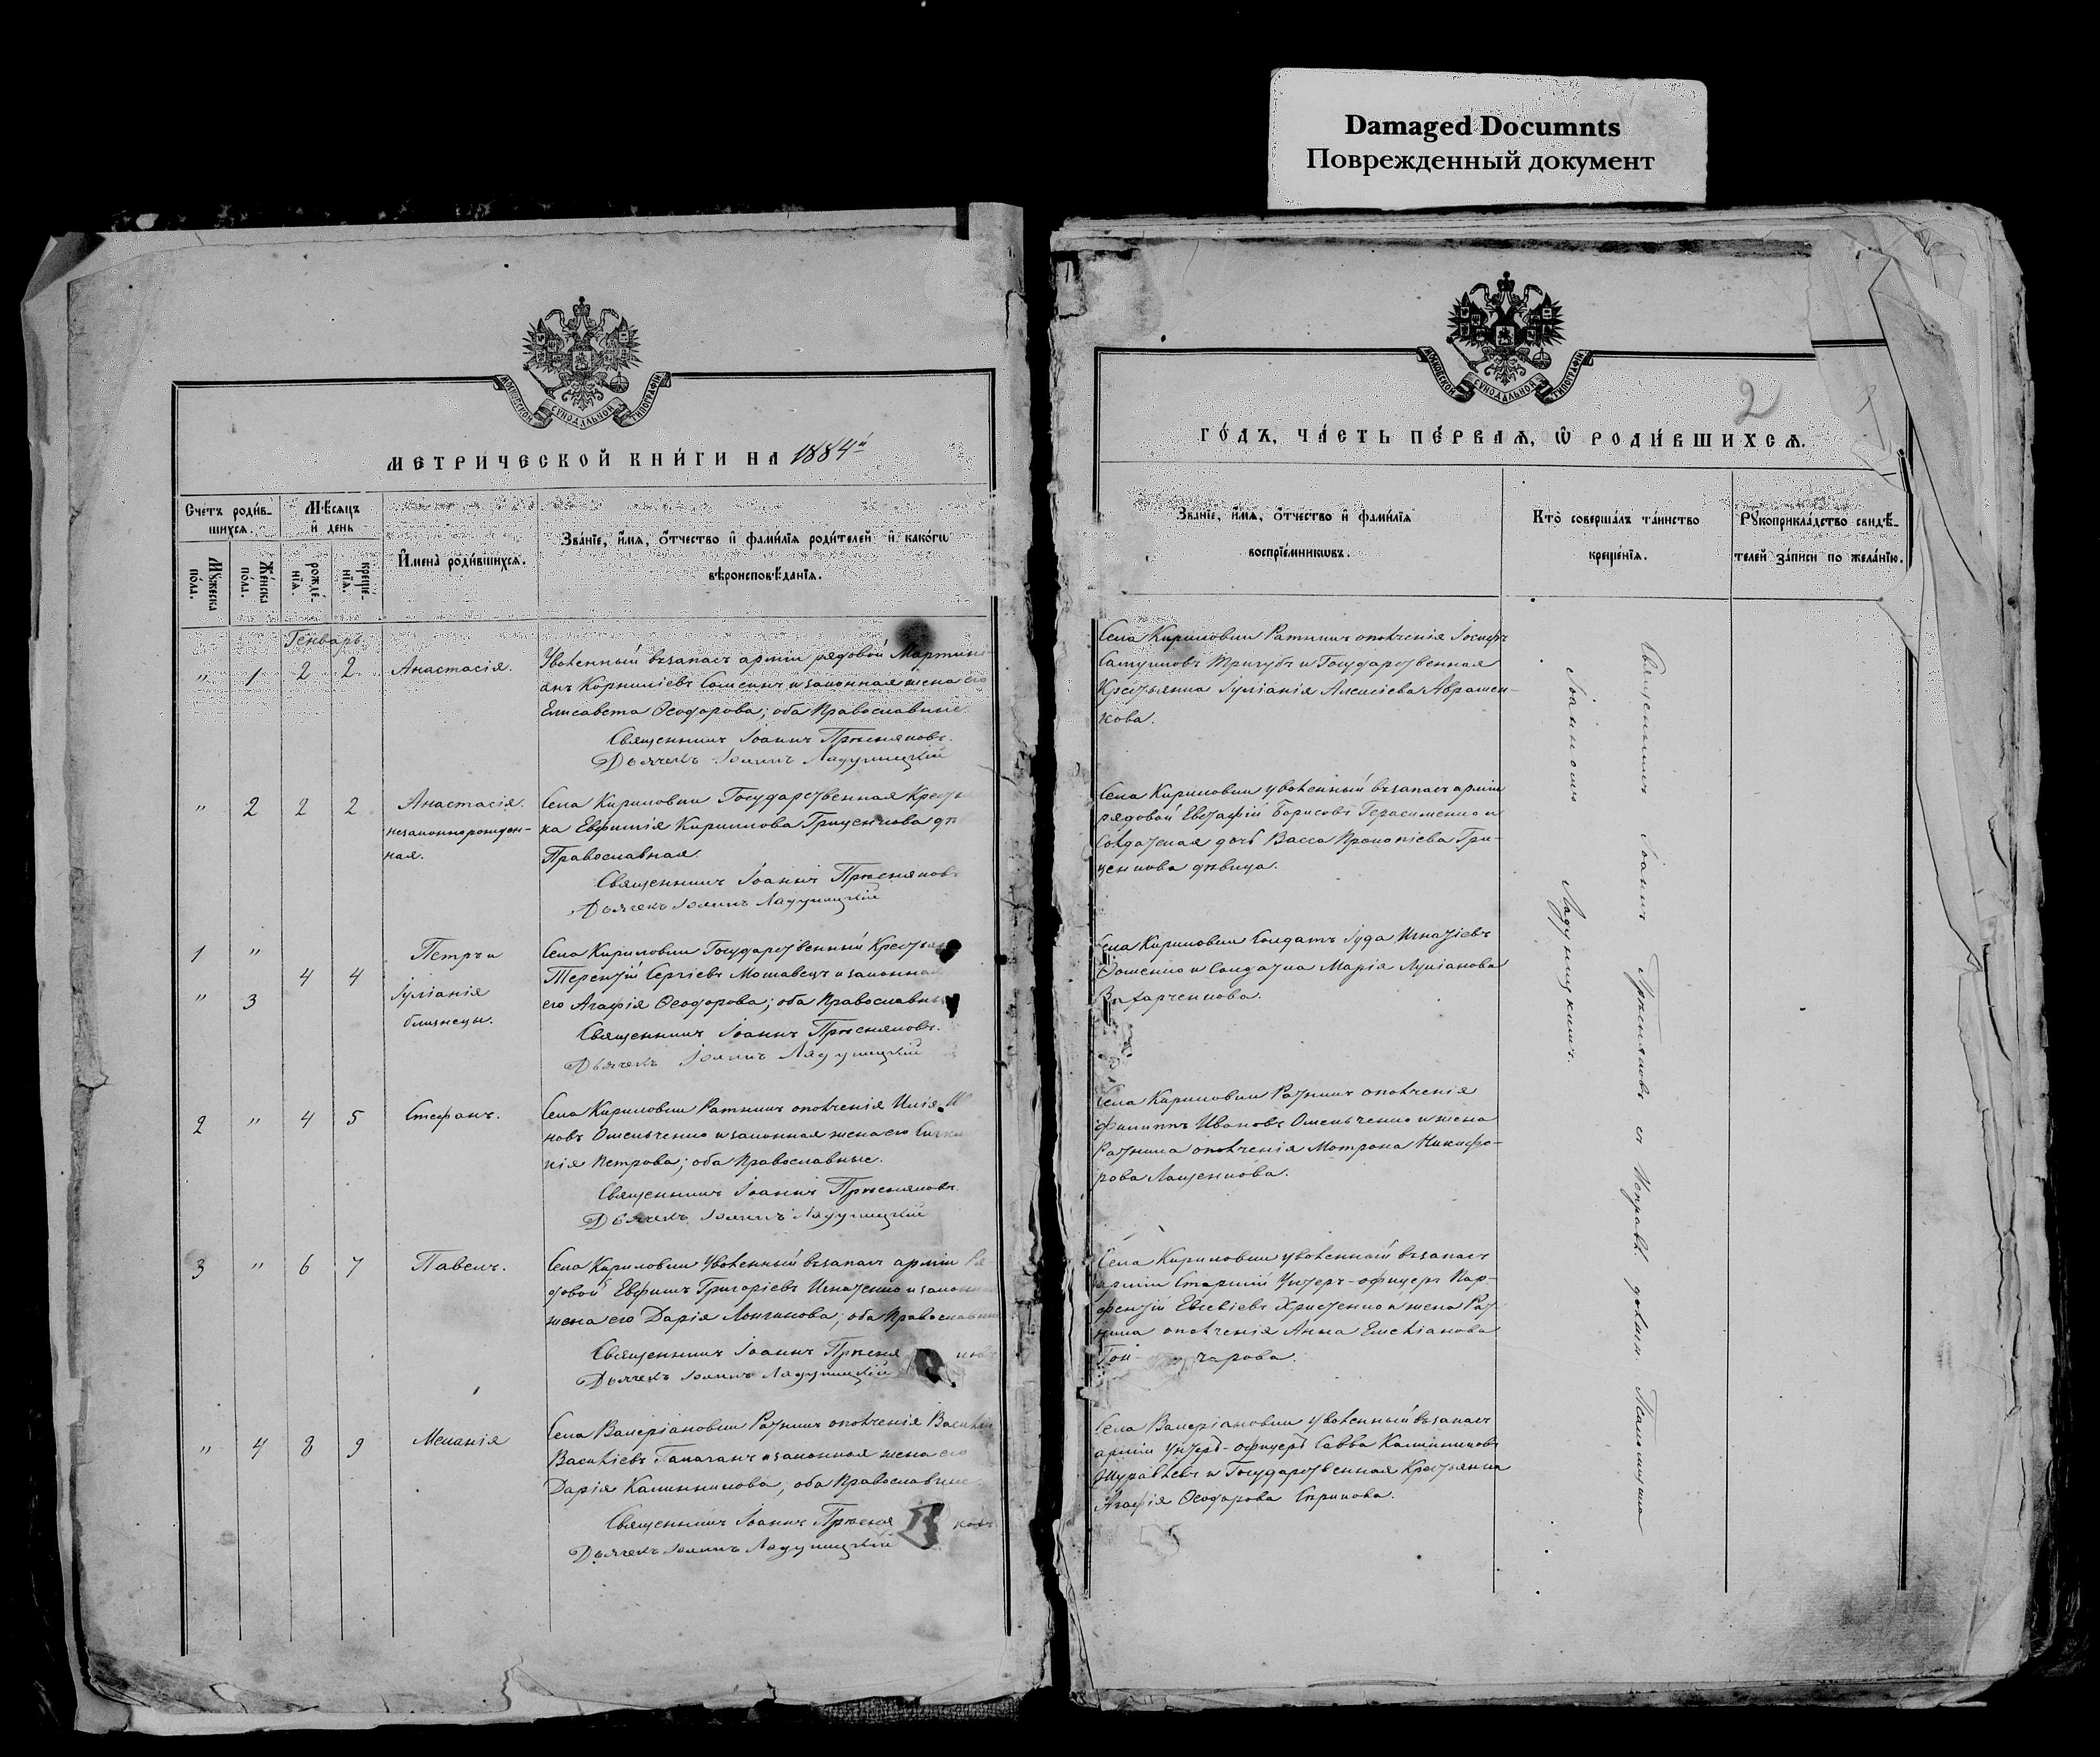 Damaged Documnts
Поврежденный документ
МОСКОВСКОЙ СУНОДАЛЬНОЙ ТИПОГРАФІИ
МЕТРИЧЕСКОЙ КНИГИ НА 1884й
Счетъ родив-
шихся.
Мѣсяцъ
и день
Мужеска
пола.
Женска
пола.
рожде-
нія.
креще-
нія.
Имена родившихся.
Званіе, имя, отчество и фамилія родителей и какогω
вѣроисповѣданія.
Генварь
" 1 2 2 Анастасія.
Уволенный въ запасъ арміи рядовой Мартини-
анъ Корниліевъ и законная жена его
Елисавета Ѳеодорова; оба Православные.
Священникъ Іоаннъ Прѣсняковъ.
Дьячекъ Іоаннъ Ладухицкій
" 2 2 2 Анастасія.
незаконнорожден-
ная.
Села Кириловки Государственная Крестьян
ка Евфимія Кирилова Гриценкова
Православная.
Священникъ Іоаннъ Прѣсняковъ
Дьячекъ Іоаннъ
1 " Петръ и
4 4
" 3 Іуліанія
близнецы.
Села Кириловки Государственный Крестьян
Терентій Сергіевъ и законная
его Агафія Ѳеодорова; оба Православные
Священникъ Іоаннъ Прѣсняковъ.
Дьячекъ Іоаннъ
2 " 4 5 Стефанъ.
Села Кириловки Ратникъ ополченія Илія
новъ Омельченко и законная жена его
нія Петрова; оба Православные.
Священникъ Іоаннъ Прѣсняковъ.
Дьячекъ Іоаннъ
3 " 6 7 Павелъ.
Села Кириловки Уволенный въ запасъ арміи Ря
довой Евфимъ Григоріевъ Игнатенко и законная
жена его Дарія Лонгинова; оба Православные
Священникъ Іоаннъ Прѣсняковъ
Дьячекъ Іоаннъ
" 4 8 9 Меланія
Села Валеріановки Ратникъ ополченія Василій
Василіевъ и законная жена его
Дарія Калинникова; оба Православные.
Священникъ Іоаннъ Прѣсняковъ
Дьячекъ Іоаннъ
МОСКОВСКОЙ СУНОДАЛЬНОЙ ТИПОГРАФІИ
2
ГОДЪ, ЧАСТЬ ПЕРВАЯ, Ѿ РОДИВШИХСЯ.
Званіе, имя, отчество и фамилія
воспріемниковъ.
Кто совершалъ таинство
крещенія.
Рукоприкладство свидѣ-
телей записи по желанію.
Села Кириловки Ратникъ ополченія Іосифъ
Тригубъ и Государственная
Крестьянка Іуліанія Алексіева Аврамен-
кова.
Села Кириловки уволенный въ запасъ арміи
рядовой Евстафій Борисовъ Герасименко и
Солдатская дочь Васса Прокопіева Гри-
ценкова дѣвица.
Села Кириловки Солдатъ Іуда Игнатіевъ
и Солдатка Марія Лукіанова
Захарченкова.
Села Кириловки Ратникъ ополченія
Филиппъ Ивановъ Омельченко и жена
Ратника ополченія Матрона Никифо-
рова Лященкова.
Села Кириловки уволенный въ запасъ
арміи Старшій Унтеръ-офицеръ Пар-
фентій Евсевіевъ Христенко и жена Рат
ника ополченія Анна Емеліанова
Гон-чарова.
Села Валеріановки уволенный въ запасъ
арміи Унтеръ-офицеръ Савва Калинниковъ
Журавлевъ и Государственная Крестьянка
Агафія Ѳеодорова Спринова.
Священникъ Іоаннъ Прѣсняковъ съ Исправл. должн. Псаломщика
Іоанномъ Ладухицкимъ.